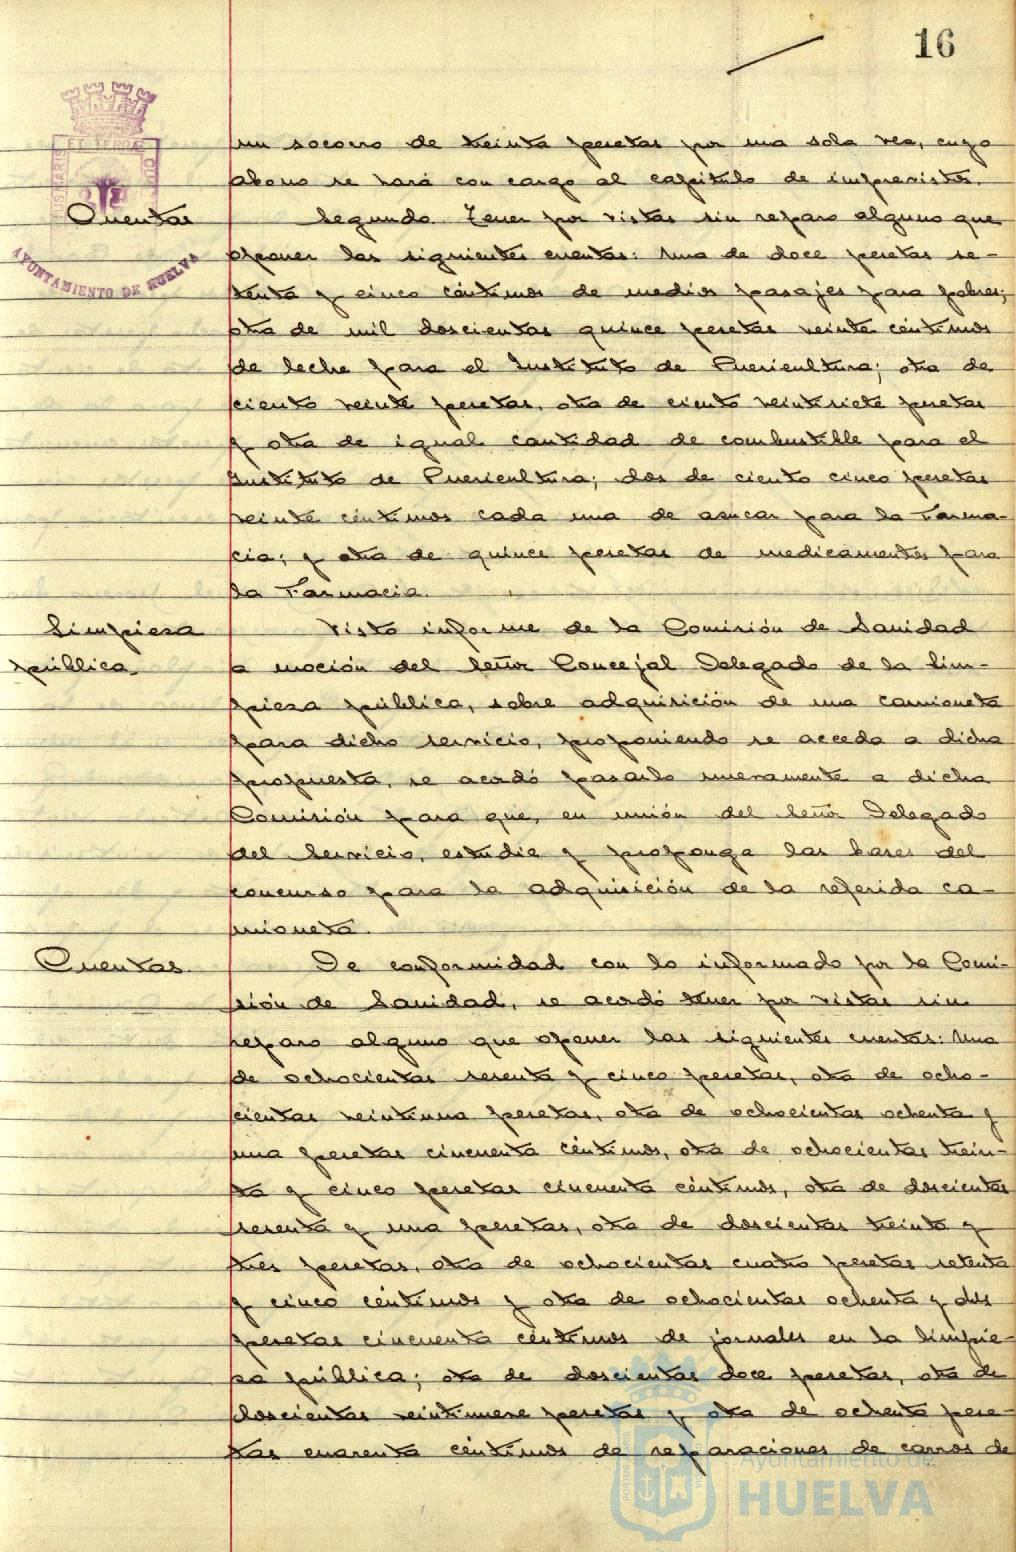 16
un socorro de treinta pesetas por una sola vez, cuyo
abono se hará con cargo al capítulo de imprevistos.
Cuentas
Segundo. Tener por vistas sin reparo alguno que
oponer las siguientes cuentas: Una de doce pesetas se-
tenta y cinco céntimos de medios pasajes para pobres;
otra de mil doscientas quince pesetas veinte céntimos
de leche para el Instituto de Puericultura; otra de
ciento veinte pesetas, otra de ciento veintisiete pesetas
y otra de igual cantidad de combustible para el
Instituto de Puericultura; dos de ciento cinco pesetas
veinte céntimos cada una de azucar para la Farma-
cia; y otra de quince pesetas de medicamentos para
la Farmacia.
Limpieza
pública.
Visto informe de la Comisión de Sanidad
a moción del Señor Concejal Delegado de la lim-
pieza pública, sobre adquisición de una camioneta
para dicho servicio, proponiendo se acceda a dicha
propuesta, se acordó pasarlo nuevamente a dicha
Comisión para que, en unión del Señor Delegado
del Servicio, estudie y proponga las bases del
concurso para la adquisición de la referida ca-
mioneta.
Cuentas.
De conformidad con lo informado por la Comi-
sión de Sanidad, se acordó tener por vistas sin
reparo alguno que oponer las siguientes cuentas: Una
de ochocientas sesenta y cinco pesetas, otra de ocho-
cientas veintiuna pesetas, otra de ochocientas ochenta y
una pesetas cincuenta céntimos, otra de ochocientas trein-
ta y cinco pesetas cincuenta céntimos, otra de doscientas
sesenta y una pesetas, otra de doscientas treinta y
tres pesetas, otra de ochocientas cuatro pesetas setenta
y cinco céntimos y otra de ochocientas ochenta y dos
pesetas cincuenta céntimos de jornales en la limpie-
za pública; otra de doscientas doce pesetas, otra de
doscientas veintinueve pesetas y otra de ochenta pese-
tas cuarenta céntimos de reparaciones de carros de
AYUNTAMIENTO DE HUELVA
Ayuntamiento de
HUELVA